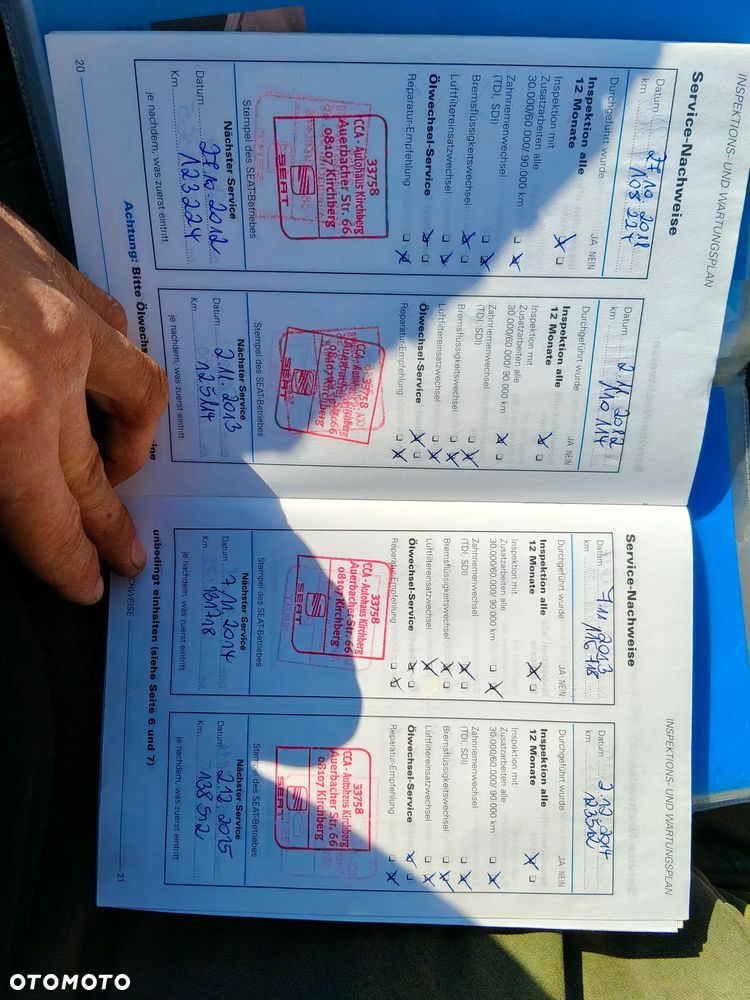 INSPEKTIONS- UND WARTUNGSPLAN
Service-Nachweise
Datum 27.10.2011
km 108 224
Durchgeführt wurde JA NEIN
Inspektion alle
12 Monate
Inspektion mit
Zusatzarbeiten alle
30.000/60.000/90.000 km
Zahnriemenwechsel
(TDI, SDI)
Bremsflüssigkeitswechsel
Luftfiltereinsatzwechsel
Ölwechsel-Service
Reparatur-Empfehlung
33758
CCA - Autohaus Kirchberg
Auerbacher Str. 66
08107 Kirchberg
SEAT
Stempel des SEAT-Betriebes
Nächster Service
Datum 27.10.2012
Km 123224
je nachdem, was zuerst eintritt
Datum 2.11.2012
km 110 114
Durchgeführt wurde JA NEIN
Inspektion alle
12 Monate
Inspektion mit
Zusatzarbeiten alle
30.000/60.000/90.000 km
Zahnriemenwechsel
(TDI, SDI)
Bremsflüssigkeitswechsel
Luftfiltereinsatzwechsel
Ölwechsel-Service
Reparatur-Empfehlung
33758
CCA - Autohaus Kirchberg
Auerbacher Str. 66
08107 Kirchberg
SEAT
Stempel des SEAT-Betriebes
Nächster Service
Datum 2.11.2013
Km 125114
je nachdem, was zuerst eintritt
Achtung: Bitte Ölwechs
20
INSPEKTIONS- UND WARTUNGSPLAN
Service-Nachweise
Datum 7.11.2013
km 116 718
Durchgeführt wurde JA NEIN
Inspektion alle
12 Monate
Inspektion mit
Zusatzarbeiten alle
30.000/60.000/90.000 km
Zahnriemenwechsel
(TDI, SDI)
Bremsflüssigkeitswechsel
Luftfiltereinsatzwechsel
Ölwechsel-Service
Reparatur-Empfehlung
33758
CCA - Autohaus Kirchberg
Auerbacher Str. 66
08107 Kirchberg
SEAT
Stempel des SEAT-Betriebes
Nächster Service
Datum 7.11.2014
Km
je nachdem, was zuerst eintritt
Datum 2.12.2014
km 123512
Durchgeführt wurde JA NEIN
Inspektion alle
12 Monate
Inspektion mit
Zusatzarbeiten alle
30.000/60.000/90.000 km
Zahnriemenwechsel
(TDI, SDI)
Bremsflüssigkeitswechsel
Luftfiltereinsatzwechsel
Ölwechsel-Service
Reparatur-Empfehlung
33758
CCA - Autohaus Kirchberg
Auerbacher Str. 66
08107 Kirchberg
SEAT
Stempel des SEAT-Betriebes
Nächster Service
Datum 2.12.2015
Km 138512
je nachdem, was zuerst eintritt
unbedingt einhalten (siehe Seite 6 und 7)
21
OTOMOTO